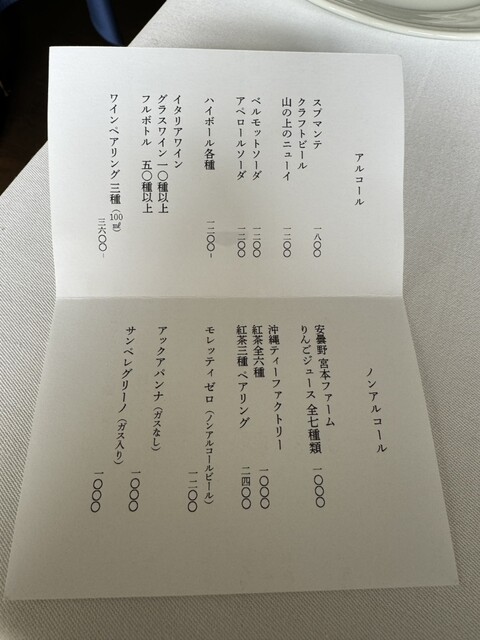 アルコール
スプマンテ 一八〇〇
クラフトビール
山の上のニューイ 一二〇〇
ベルモットソーダ 一二〇〇
アペロールソーダ 一二〇〇
ハイボール各種 一二〇〇~
イタリアワイン
グラスワイン一〇種以上
フルボトル 五〇種以上
ワインペアリング三種(100㎖) 三六〇〇~
ノンアルコール
安曇野 宮本ファーム
りんごジュース 全七種類 一〇〇〇
沖縄ティーファクトリー
紅茶全六種 一〇〇〇
紅茶三種 ペアリング 二四〇〇
モレッティ ゼロ(ノンアルコールビール) 一二〇〇
アックアパンナ(ガスなし) 一〇〇〇
サンペレグリーノ(ガス入り) 一〇〇〇